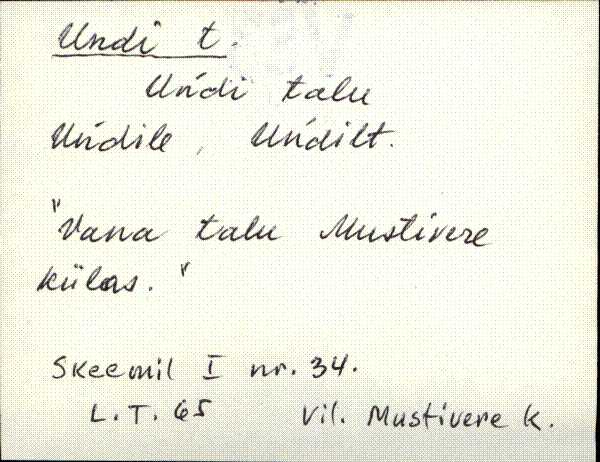 Undi t.
Uńdi talu
Uńdile, Uńdilt.
"Vana talu Mustivere
külas."
Skeemil I nr. 34.
L.T. 65 Vil. Mustivere k.